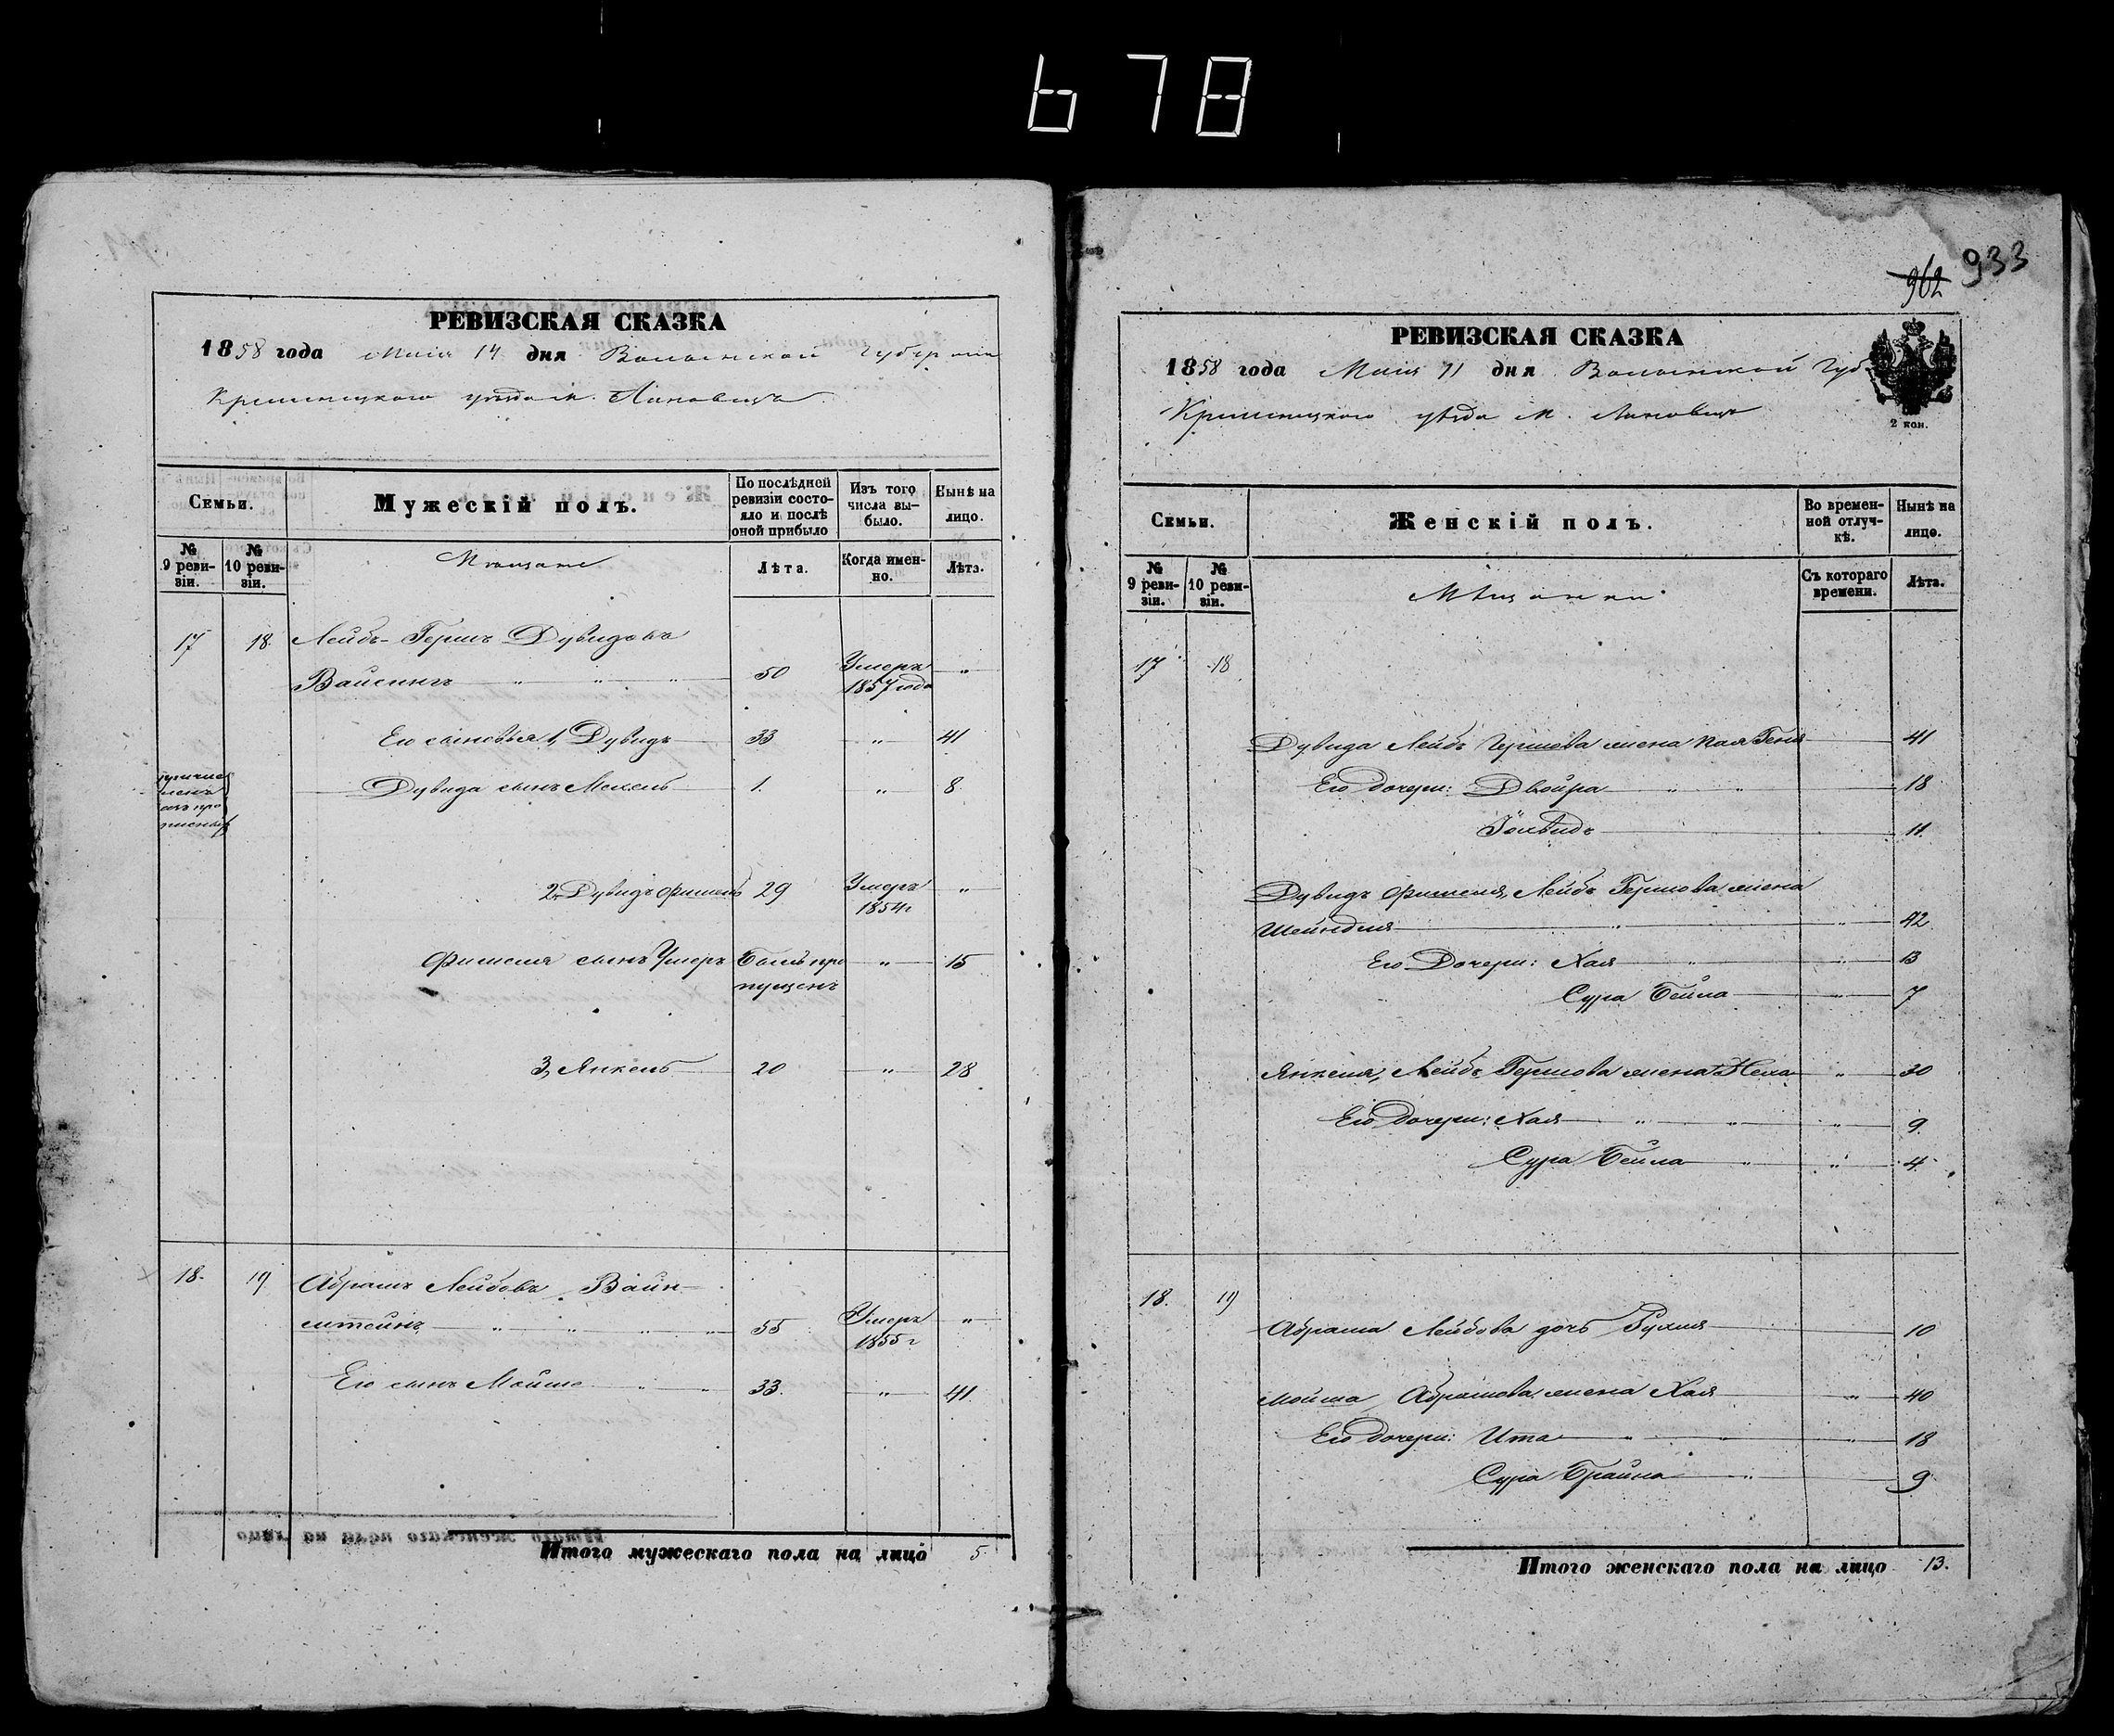 678
РЕВИЗСКАЯ СКАЗКА
1858 года Мaiя 14 дня Волынской Губерніи
Кременецкого уѣзда м. Лановецъ
Семьи.
Мужескій полъ.
По послѣдней ревизіи состояло и послѣ оной прибыло
Изъ того числа вы-было.
Нынѣ на лицо.
№ 9 реви-зіи.
№ 10 реви-зіи.
Мѣщане
Лѣта.
Когда имен-но.
Лѣта.
17 18. Лейбъ-Гершъ Дувидовъ
50 Умеръ 1857 года "
Его сыновья 1, Дувидъ 33 " 41
Дувида сынъ Мехель 1. " 8
2, Дувидъ Фишель 29 Умеръ 1854 г "
Фишеля сынъ Былъ про пущенъ " 15
3, Янкель 20 " 28
18. 19 Абрамъ Лейбовъ Вайн-
штейнъ 55 Умеръ 1855 г "
Его сынъ Мойше 33. " 41.
Итого мужескаго пола на лицо 5.
962 933
РЕВИЗСКАЯ СКАЗКА
1858 года Маія 11 дня Волынской Губ
2 коп.
Кременецкого уѣзда м. Лановецъ
Семьи.
Женскій полъ.
Во времен-ной отлуч-кѣ.
Нынѣ на лицо.
№ 9 реви-зіи.
№ 10 реви-зіи.
Мѣщанки
Съ котораго времени.
Лѣта.
17 18
Дувида Лейбъ Гершова жена Геня 41
Его дочери: Двойра " " 18
11.
Дувидъ Фишеля, Лейбъ Гершова жена
Шейндля " " 42
Его Дочери: Хая " " 13
Сура Бейла " 7
Янкеля, Лейбъ Гершова жена " 30
Его дочери: Хая " " " 9
Сура Бейла " " 4
18. 19
Абрама Лейбова дочь Рухля 10
Мойша Абрамова жена Хая " 40
Его дочери: Ита " " " 18
Сура Брайна " 9
Итого женскаго пола на лицо 13.